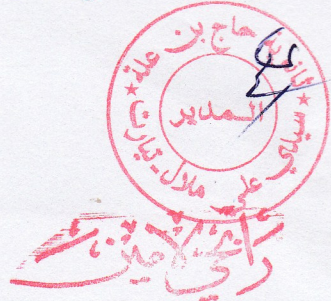 ثانوية حاج بن علة
المدير
سيدي علي ملال - تيارت